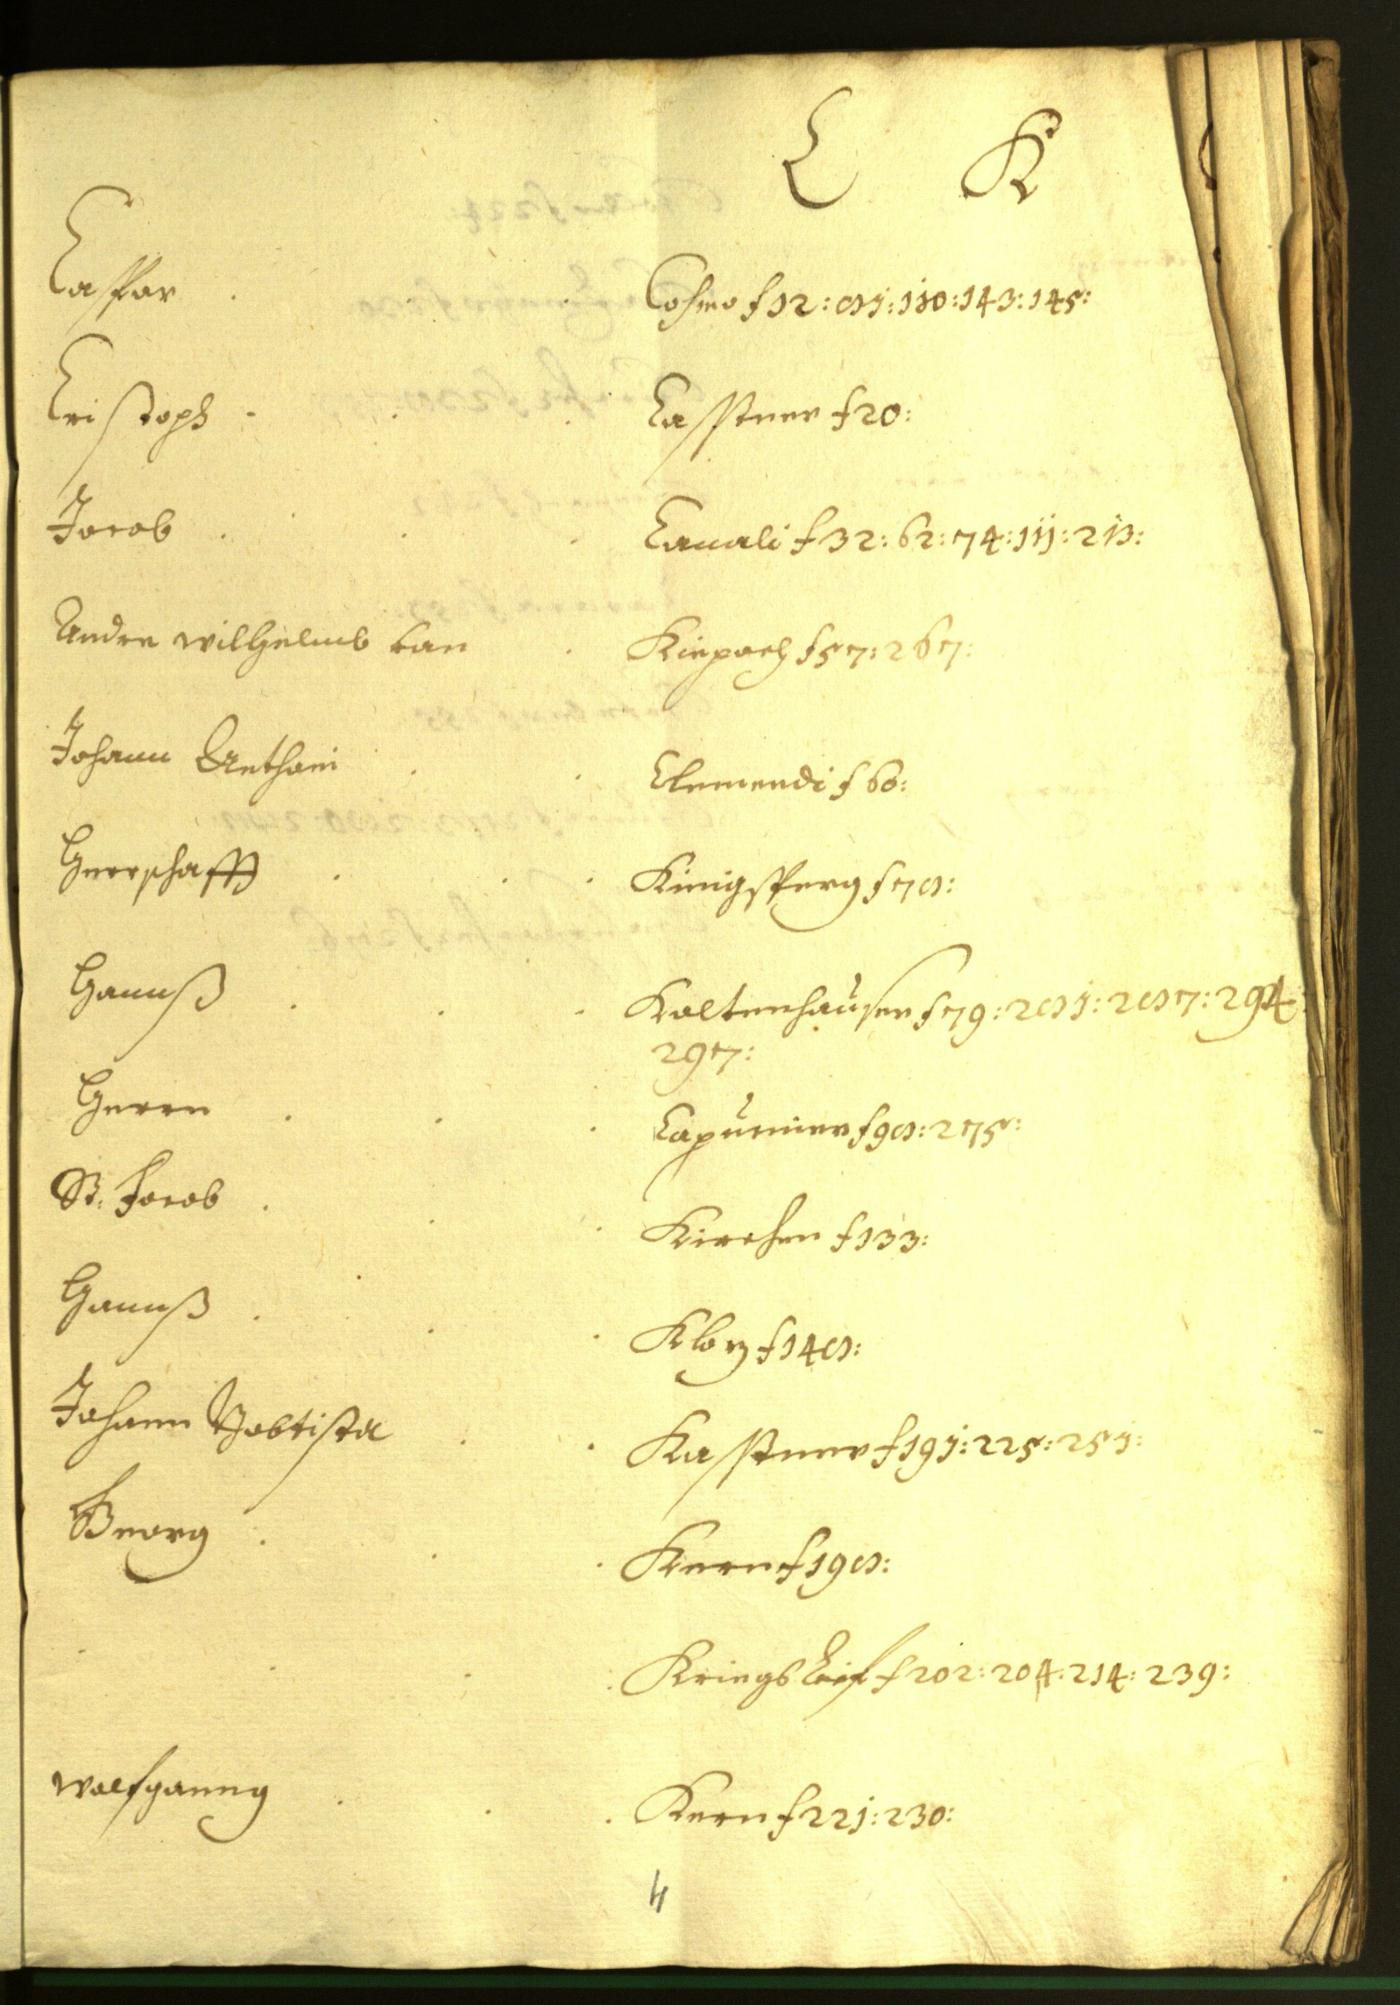 C K
Caspar . . . Cosmo f 12: 81: 110: 143: 145:
Cristoph . . . Casstner f 20:
Jacob . . . Canali f 32: 62: 74: 111: 213:
Andre wilhelmb van . Kiepach f 57: 267:
Johann Anthoni . . Clemendi f 60:
Herrschafft . . . Kinigsperg f 78:
Hannß . . . Kaltenhauser f 79: 281: 287: 294:
297:
Herrn . . . Capuciner f 98: 275:
St: Jacob . . . Kirchen f 133:
Hannß . . . Kloz f 148:
Johann Babtista . . Kasstner f 191: 225: 251:
Georg . . . Kern f 198:
. . . . Kriegs f 202: 204: 214: 239:
wolfganng . . . Kern f 221: 230:
4